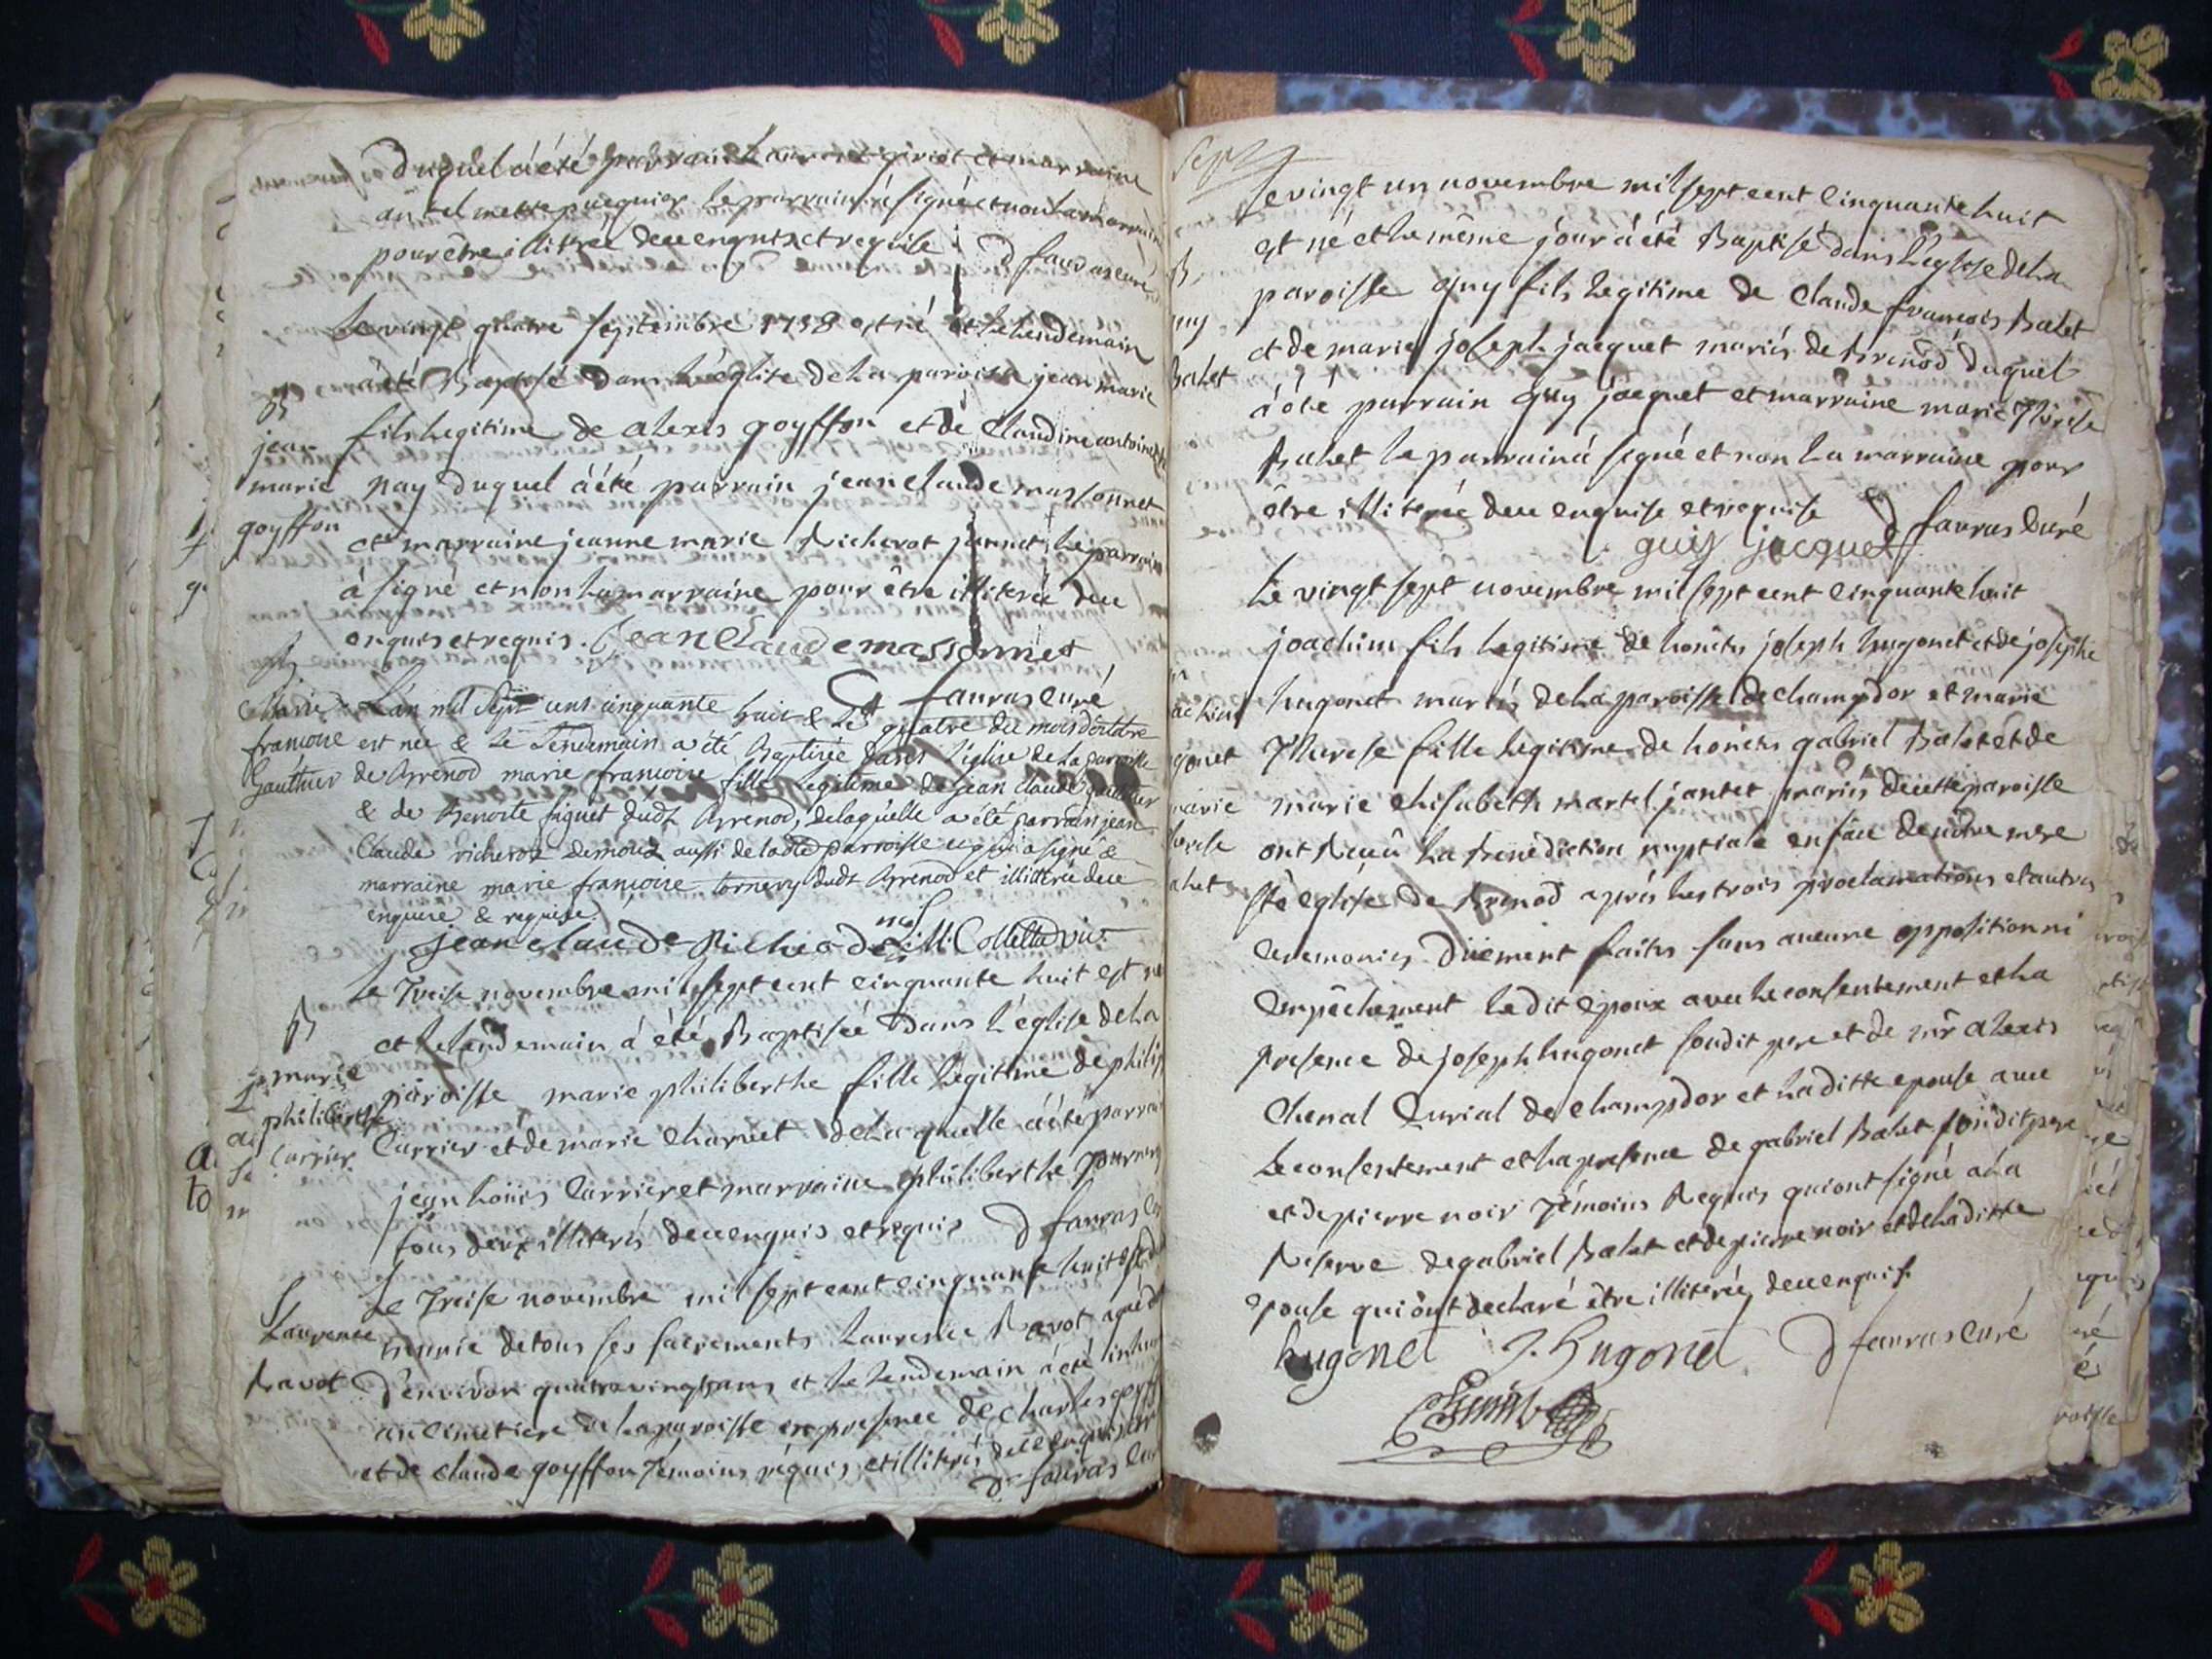 duquel à été parrain Laurent griot et marraine
antelmette pacquier le parrain à signé et non la marraine
pour être illiterée deue enquise et requise D fauras curé
Le vingt quatre septembre 1758 est né et le lendemain
à été Baptisé dans l'église de la paroisse jean marie
B
jean
marie
goyffon
fils legitime de alexis goyffon et de Claudine antoinette
nay duquel à été parrain jean claude massonnet
et marraine jeanne marie Richerot jannet le parrain
à signé et non la marraine pour être illiterée deue
enquis et requis. Jean Claude massonnet
D fauras curé
B
Marie
francoise
Gauthier
L'an mil Sept cens cinquante huit & le quatre du mois d'octobre
est née & le Lendemain a été Baptisée dans l'église de la paroisse
de Brenod marie francoise fille Legitime de jean claude gauthier
& de Benoite figuet dudt Brenod, delaquelle a été parrain jean
Claude richerot aussi de ladte parroisse qui a signé &
marraine marie francoise tornery dudt Brenod et illiterée deue
enquise & requise.
jean claude Richerod M. Colletta vic.
Le treise novembre mil sept cent cinquante huit est née
et le lendemain à été Baptisée dans l'église de la
B
marie
philiberthe
Carrier
paroisse marie philiberthe fille legitime de philip
Carrier et de marie Charvet delaquelle à été parrain
jean loüis Carrier et marraine philiberthe tournery
tous deux illiterés deue enquis et requis D fauras curé
Le treise novembre mil sept cent cinquante huit est
S
Laurence
Ravot
munie de tous ses sacrements Laurence Ravot agée
d'environ quatrevingt ans et le lendemain à été inhumée
au cimetiere de la paroisse en presence de charles goyff
et de claude goyffon témoins requis et illiterés deue enquis
D fauras cur
Le vingt un novembre mil sept cent cinquante huit
est né et le même jour à été Baptisé dans l'eglise de la
B
guy
Balet
paroisse guy fils legitime de Claude françois Balet
et de marie joseph jacquet mariés de Brenod duquel
à été parrain guy jacquet et marraine marie Therese
Balet le parrain à signé et non la marraine pour
être illiterée deue enquise et requise D fauras Curé
guy jacquet
Le vingt sept novembre mil sept cent cinquante huit
joachim fils legitime de honêtes joseph hugonet et de josephe
hugonet mariés de la paroisse de champdor et marie
Therese fille legitime de honêtes gabriel Balet et de
achim
gonet
marie
herese
alet
marie elisabeth martel jantet mariés de cette paroisse
ont Receû la Benediction nuptiale en face de nôtre mere
ste eglise de Brenod après les trois proclamations et autres
ceremonies düement faites sans aucune opposition ni
empêchement le dit epoux avec le consentement et la
presence de joseph hugonet soudit pere et de mr alexis
Chenal Curial de champdor et la ditte epouse avec
le consentement et la presence de gabriel Balet soudit pere
et de pierre noir témoins Requis qui ont signé a la
Reserve de gabriel Balet et de pierre noir et de la ditte
epouse qui ont declaré être illiterés deue enquis
hugonet J. hugonet D fauras curé